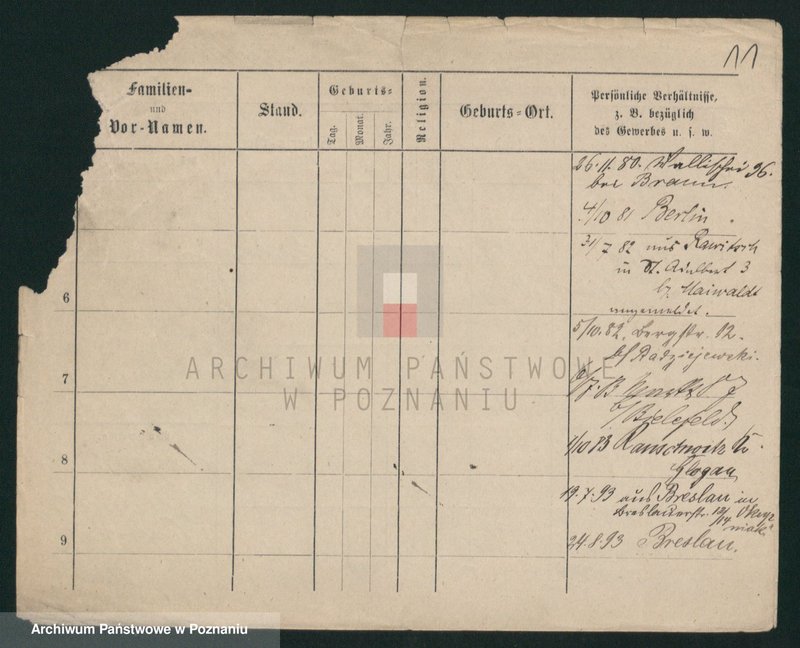 11
Familien-
und
Vor-Namen.
Stand.
Geburts-
Tag.
Monat.
Jahr.
Religion.
Geburts-Ort.
Persönliche Verhältnisse,
z. B. bezüglich
des Gewerbes u. s. w.
26.11.80. Wallischei 96.
bei Braun.
4/10 81 Berlin.
31/7 82 aus Rawitsch
in St. Adalbert 3
b/ Maiwaldt
angemeldet.
6
5/10.82. Bergstr. 12.
b/ Radziejewski.
7
b/ Bielefeld.
8
1/10 83
Glogau
19.7.93 aus Breslau in
Breslauerstr.
9
24.8.93 Breslau.
ARCHIWUM PAŃSTWOWE
W POZNANIU
Archiwum Państwowe w Poznaniu